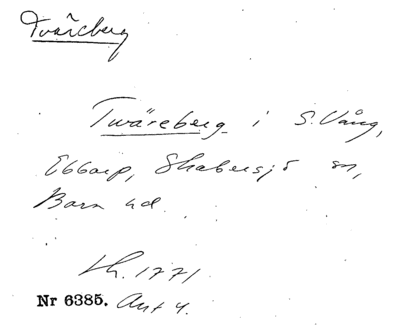 Tväreberg
Twäreberg i S. Vång,
Ebbarp, Skabersjö sn,
Bara hd.
Lh. 1771
Nr 6385. Akt 4.